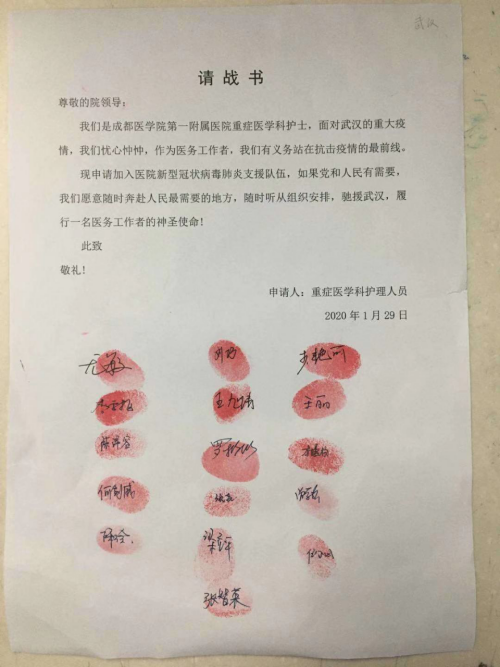 武汉
请 战 书
尊敬的院领导：
我们是成都医学院第一附属医院重症医学科护士，面对武汉的重大疫
情，我们忧心忡忡，作为医务工作者，我们有义务站在抗击疫情的最前线。
现申请加入医院新型冠状病毒肺炎支援队伍，如果党和人民有需要，
我们愿意随时奔赴人民最需要的地方，随时听从组织安排，驰援武汉，履
行一名医务工作者的神圣使命！
此致
敬礼！
申请人：重症医学科护理人员
2020 年 1 月 29 日
尤敏
王丽